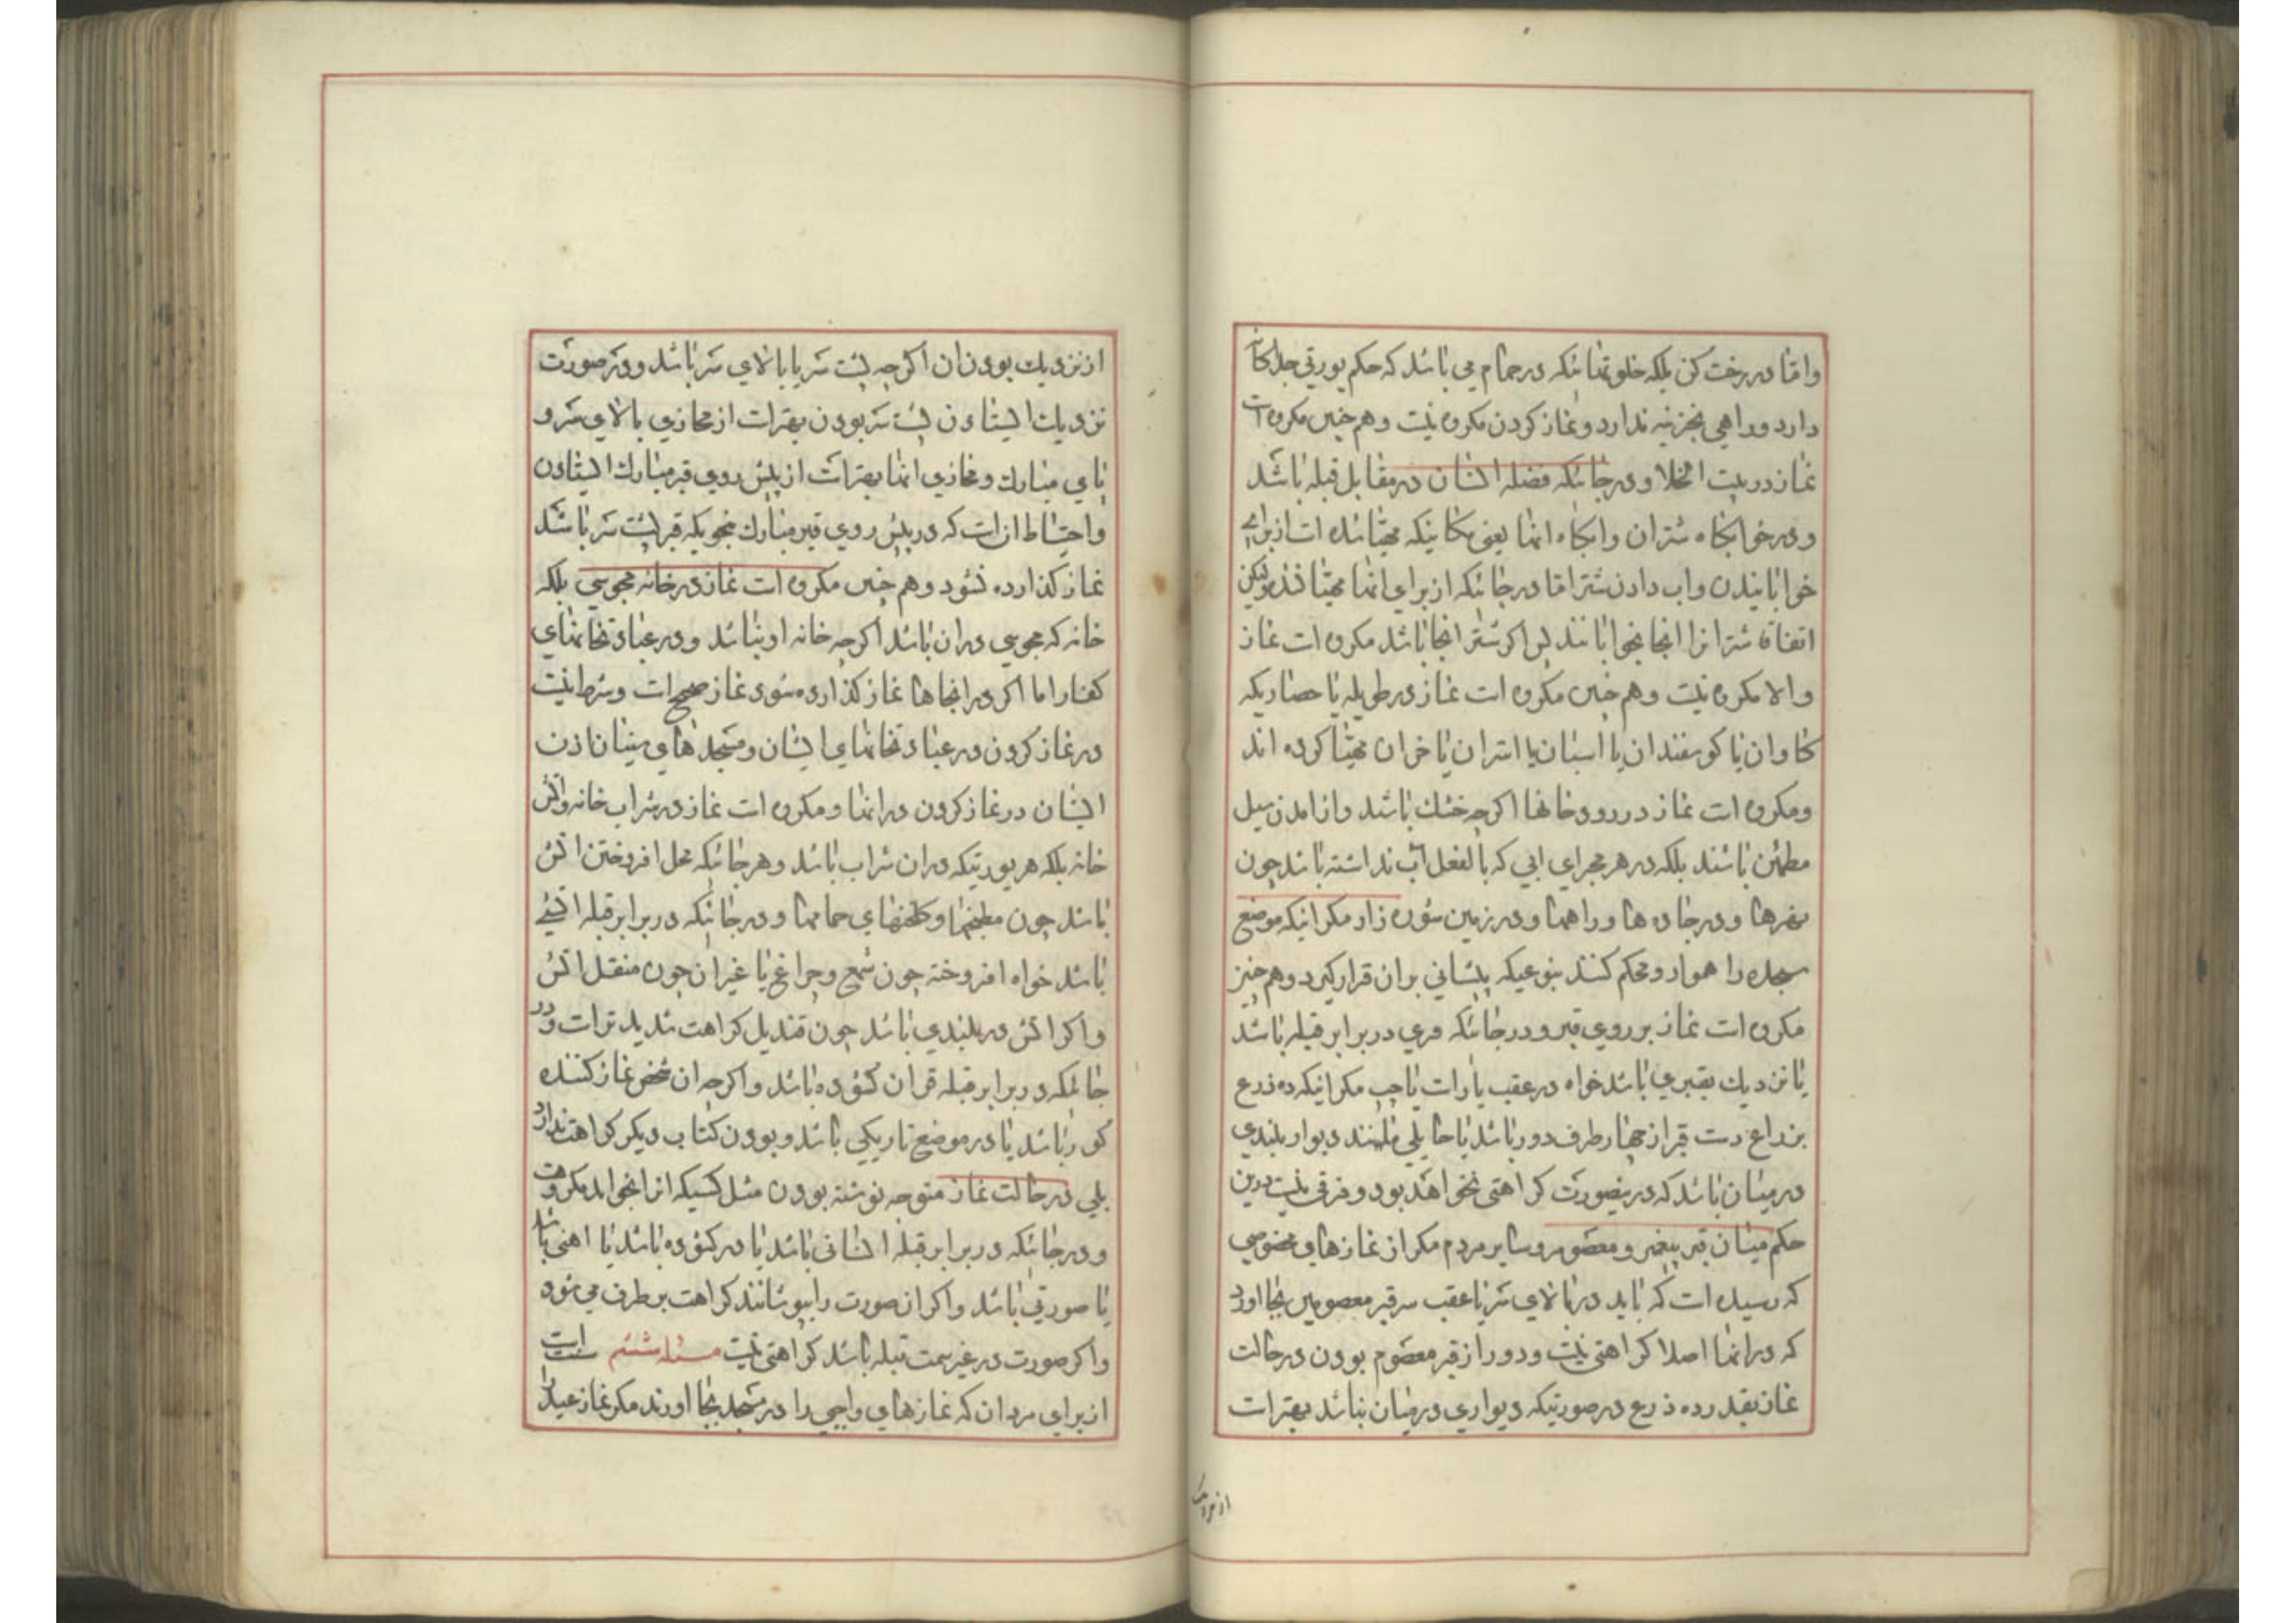 واما در رخت کن بلکه خلوتهائیکه در حمام می باشد که حکم یورتی جداکانه
دارد و راهی بخزینه ندارد و نماز کردن مکروه نیست و هم چنین مکروه است
نماز در بیت الخلا و در جائیکه فضله انسان در مقابل قبله باشد
و در خوابکاه شتران و ابکاه انها یعنی مکانیکه مهیا شده است از برای
خوابانیدن و اب دادن شتر اما در جائیکه از برای انها مهیا نشده ولیکن
اتفاقا شتر انرا انجا بخوابانند پس اکر شتر انجا باشد مکروه است نماز
والا مکروه نیست و هم چنین مکروه است نماز در طویله یا حصاریکه
کاوان یا کوسفندان یا اسبان یا استران یا خران مهیا کرده اند
و مکروه است نماز در رودخانها اکرچه خشك باشد و از امدن سیل
مطمئن باشند بلکه در هر مجرای ابی که بالفعل اب نداشته باشد چون
نهرها و در جاده ها و راهها و در زمین شوره زار مکر اینکه موضع
سجده را هموار و محکم کنند بنوعیکه پیشانی بران قرار کیرد و هم چنین
مکروه است نماز بر روی قبر و در جائیکه قبری در برابر قبله باشد
یا نزدیك بقبری باشد خواه در عقب یا راست یا چپ مکر اینکه ده ذرع
بذراع دست قبر از چهار طرف دور باشد یا حایلی مانند دیوار بلندی
در میان باشد که در ینصورت کراهتی نخواهد بود و فرقی نیست درین
حکم میان قبر پیغمبر و معصوم و سایر مردم مکر از نمازهای مخصوصی
که رسیده است که باید در بالای سر یا عقب سر قبر معصومین بجا اورد
که در انها اصلا کراهتی نیست و دور از قبر معصوم بودن در حالت
نماز بقدر ده ذرع در صورتیکه دیواری در میان نباشد بهتر است
از نزدیك
از نزدیك بودن ان اکرچه پشت سر یا بالای سر باشد و در صورت
نزدیك ایستادن پشت سر بودن بهتر است از محاذی بالای سر و
پای مبارك و محاذی انها بهتر است از پیش روی قبر مبارك ایستادن
و احتیاط ان است که در پیش روی قبر مبارك بنحویکه قبر پشت سر باشد
نماز کذارده نشود و هم چنین مکروه است نماز در خانه مجوسی بلکه
خانه که مجوسی در ان باشد اکرچه خانه او نباشد و در عبادتخانهای
کفار اما اکر در انجاها نماز کذارده شود نماز صحیح است و شرط نیست
در نماز کردن در عبادتخانهای ایشان و مسجدهای سنیان اذن
ایشان در نماز کردن در انها و مکروه است نماز در شراب خانه و اتش
خانه بلکه هر یورتیکه در ان شراب باشد و هر جائیکه محل افروختن اتش
باشد چون مطبخها و کلخنهای حمامها و در جائیکه در برابر قبله اتشی
باشد خواه افروخته چون شمع و چراغ یا غیر ان چون منقل اتش
و اکر اتش در بلندی باشد چون قندیل کراهت شدید تر است و در
جائیکه در برابر قبله قران کشوده باشد و اکرچه ان شخص نماز کننده
کور باشد یا در موضع تاریکی باشد و بودن کتاب دیکر کراهت ندارد
بلی در حالت نماز متوجه نوشته بودن مثل کسیکه انرا بخواند مکروهست
و در جائیکه در برابر قبله انسانی باشد یا در کشوده باشد یا اهنی باشد
یا صورتی باشد و اکر ان صورت را بپوشانند کراهت بر طرف می شود
و اکر صورت در غیر سمت قبله باشد کراهتی نیست مسئله ششم سنت است
از برای مردان که نمازهای واجبی را در مسجد بجا اورند مکر نماز عید را